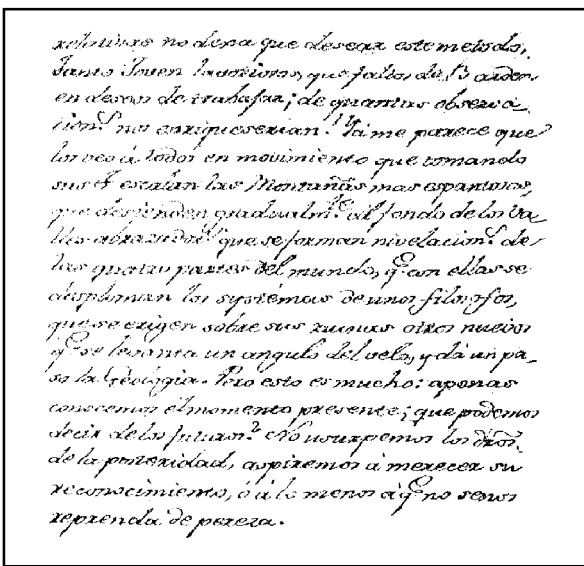 relativas no dexa que desear este metodo.
Tanto Joven laborioso, que faltos de B arden
en deseos de trabajar; de quantas observa
cion.s nos enriquecerian! Ya me parece que
los veo á todos en movimiento que tomando
sus T escalan las Montañas mas espantosas,
que descienden gradualm.te al fondo de los Va
lles abrazador.s que se forman nivelacion.s de
las quatro partes del mundo, q.e con ellas se
desploman los systémas de unos filosofos,
que se erigen sobre sus ruinas otros nuevos
q.e se levanta un angulo del velo, y dá un pa_
so la Geologia. Pero esto es mucho: apenas
conocemos el momento presente; que podemos
decir de los futuros? No usurpemos los dros.
de la posteridad, aspiremos á merecer su
reconocimiento, ó á lo menos á q.e no senos
reprenda de pereza.